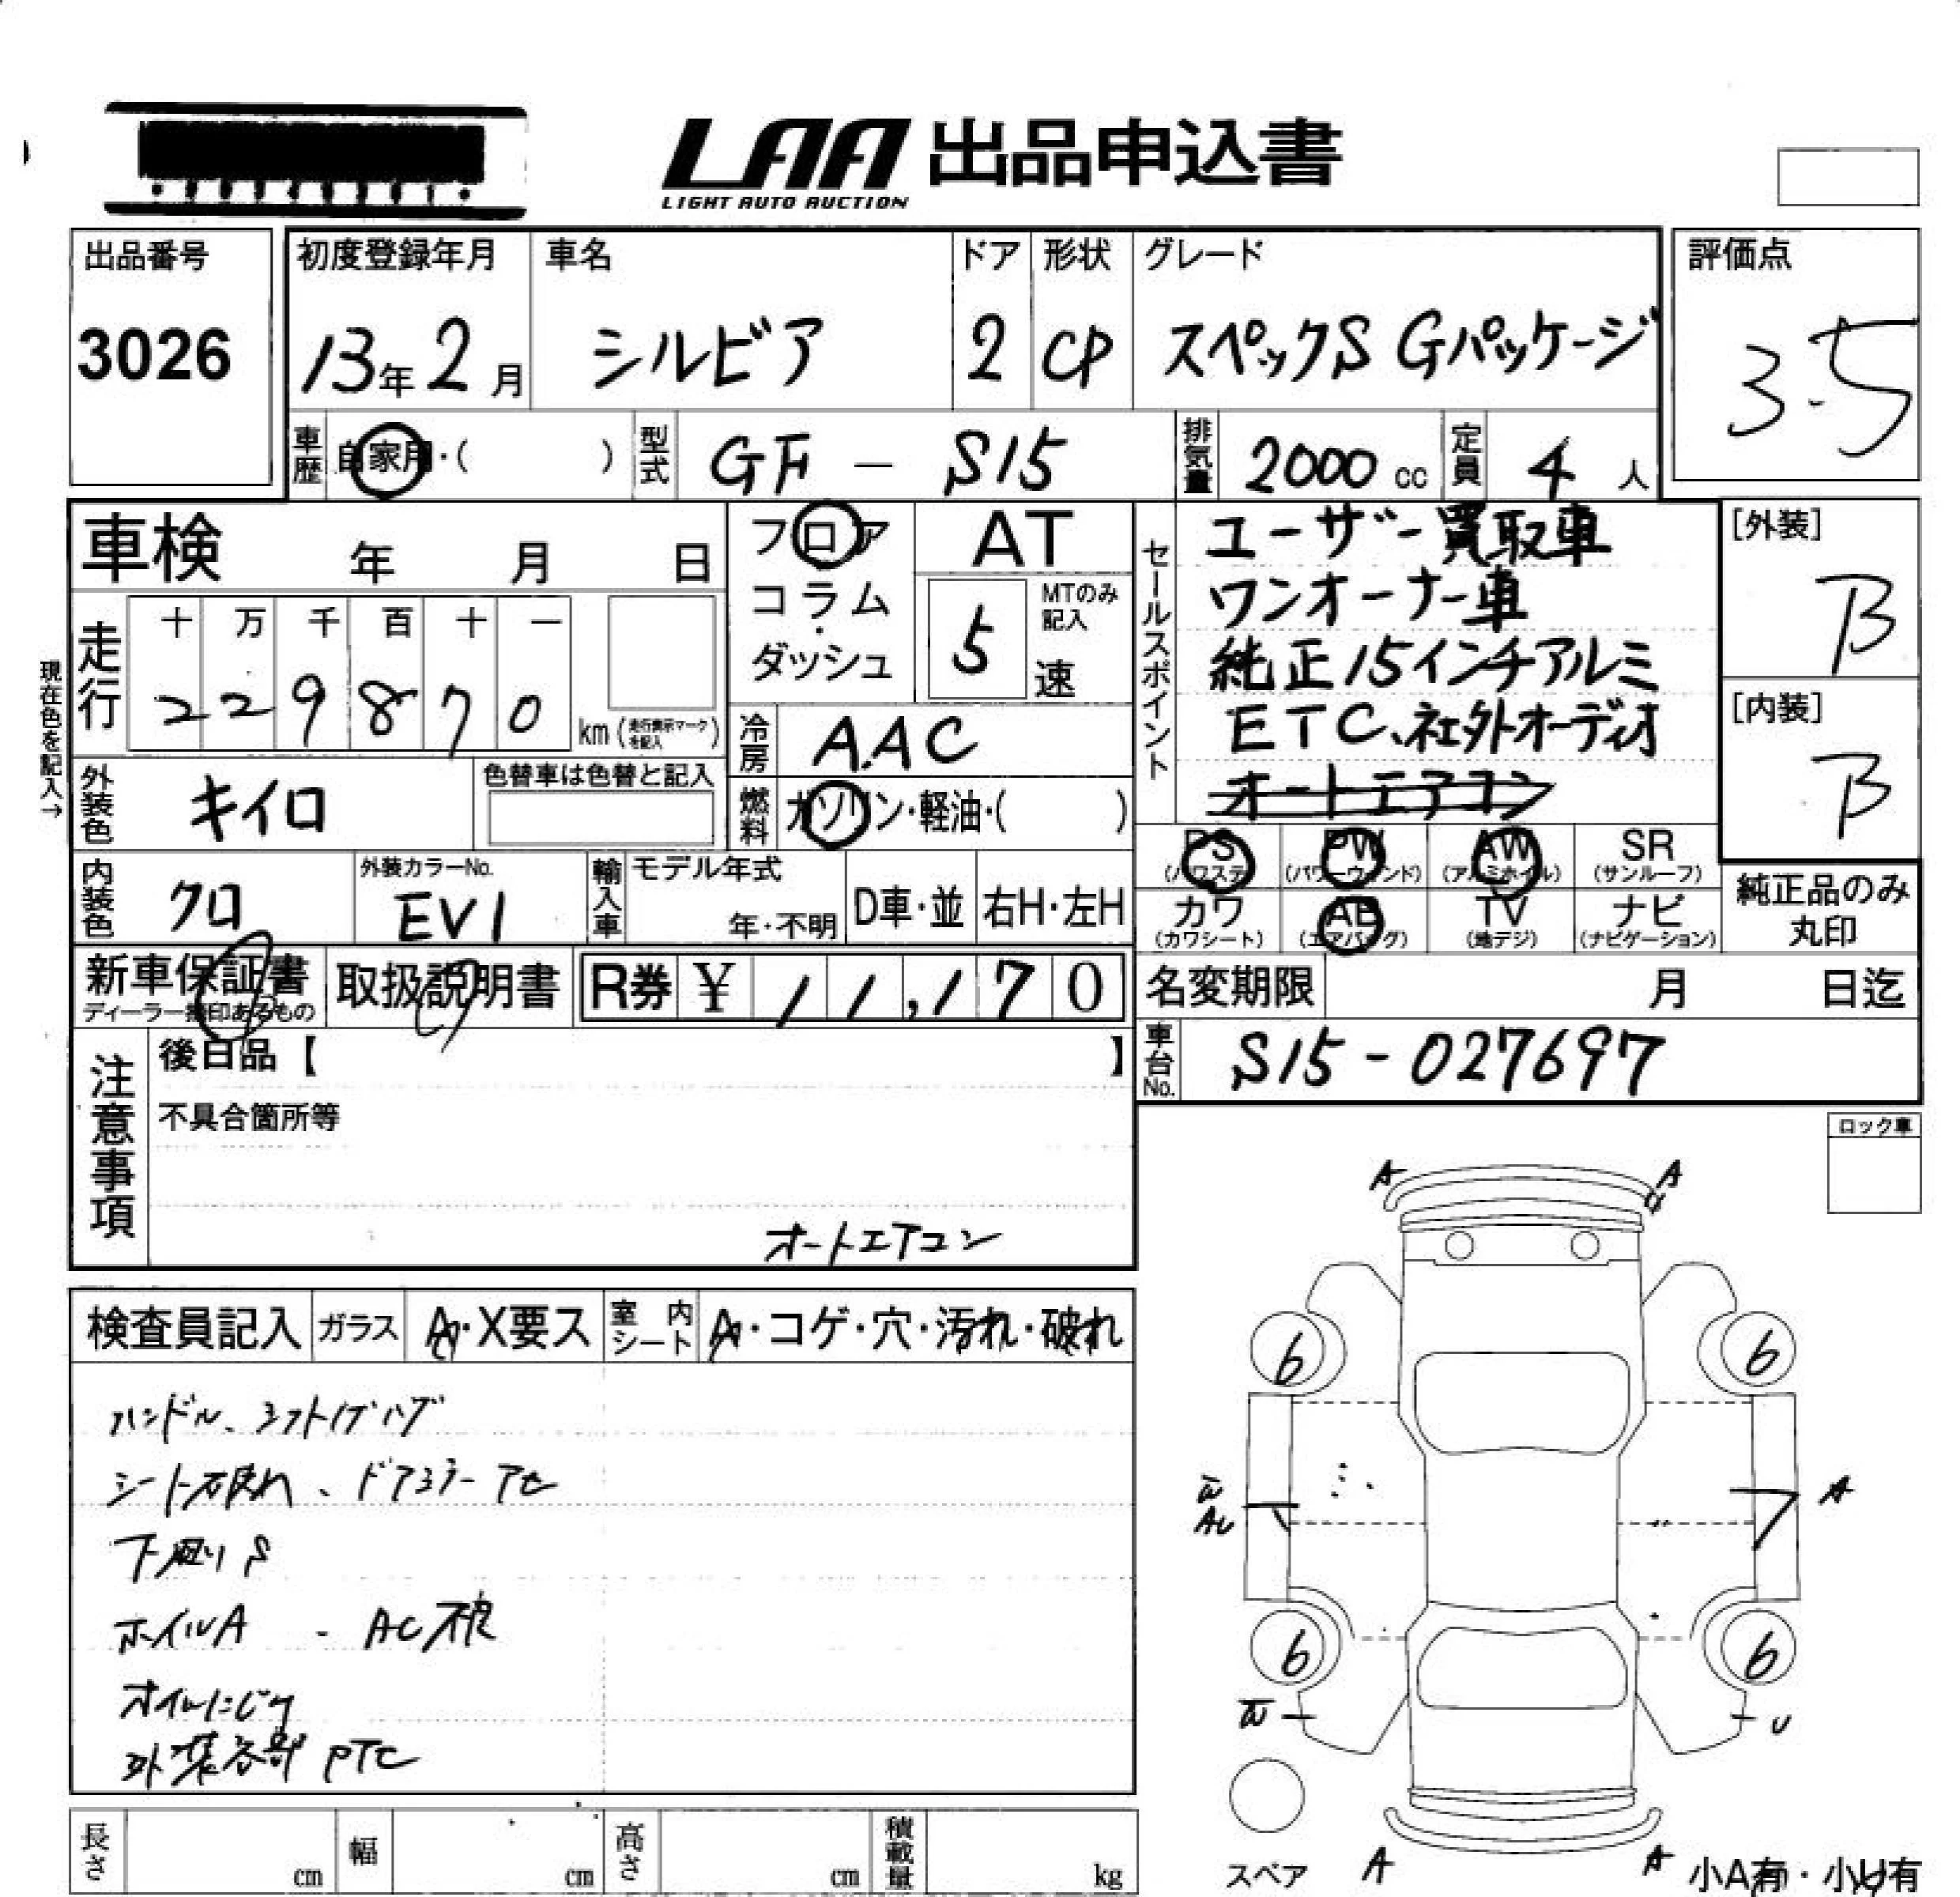 LAA 出品申込書
LIGHT AUTO AUCTION
出品番号
3026
初度登録年月
13年2月
車名
シルビア
ドア
2
形状
CP
グレード
スペックS Gパッケージ
評価点
3.5
車歴
自家用・( )
型式
GF - S15
排気量
2000 cc
定員
4 人
車検 年 月 日
フロア
コラム・
ダッシュ
AT
MTのみ記入
5 速
セールスポイント
ユーザー買取車
ワンオーナー車
純正15インチアルミ
ETC、社外オーディオ
オートエアコン
[外装]
B
[内装]
B
現在色を記入→
走行
十 万 千 百 十 一
2 2 9 8 7 0
km (走行表示マークを記入)
冷房
AAC
外装色
キイロ
色替車は色替と記入
燃料
ガソリン・軽油・( )
PS
(パワステ)
PW
(パワーウィンド)
AW
(アルミホイル)
SR
(サンルーフ)
カワ
(カワシート)
AB
(エアバッグ)
TV
(地デジ)
ナビ
(ナビゲーション)
純正品のみ
丸印
内装色
クロ
外装カラーNo.
EV1
輸入車
モデル年式
年・不明
D車・並
右H・左H
新車保証書
ディーラー捺印あるもの
取扱説明書
R券 ¥ 11,170
名変期限 月 日迄
車台No.
S15-027697
注意事項
後日品【 】
不具合箇所等
オートエアコン
ロック車
検査員記入
ガラス
A・X要ス
室内シート
A・コゲ・穴・汚れ・破れ
ハンドル、シフトノブハゲ
シート破れ、ドアミラーAC
下廻りS
ホイルA
オイルにじみ
外装各部 PTC
A A
6 6
W
AU
A
6 6
W U
スペア
A A
小A有・小U有
長さ cm
幅 cm
高さ cm
積載量 kg